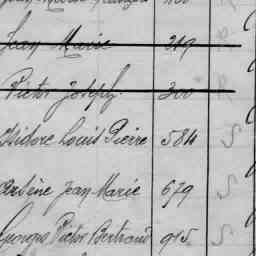 Jean Marie 319
Victor Joseph 300
Isidore Louis Pierre 584 S
Arsène Jean Marie 679 S
Georges Victor Bertrand 915 S